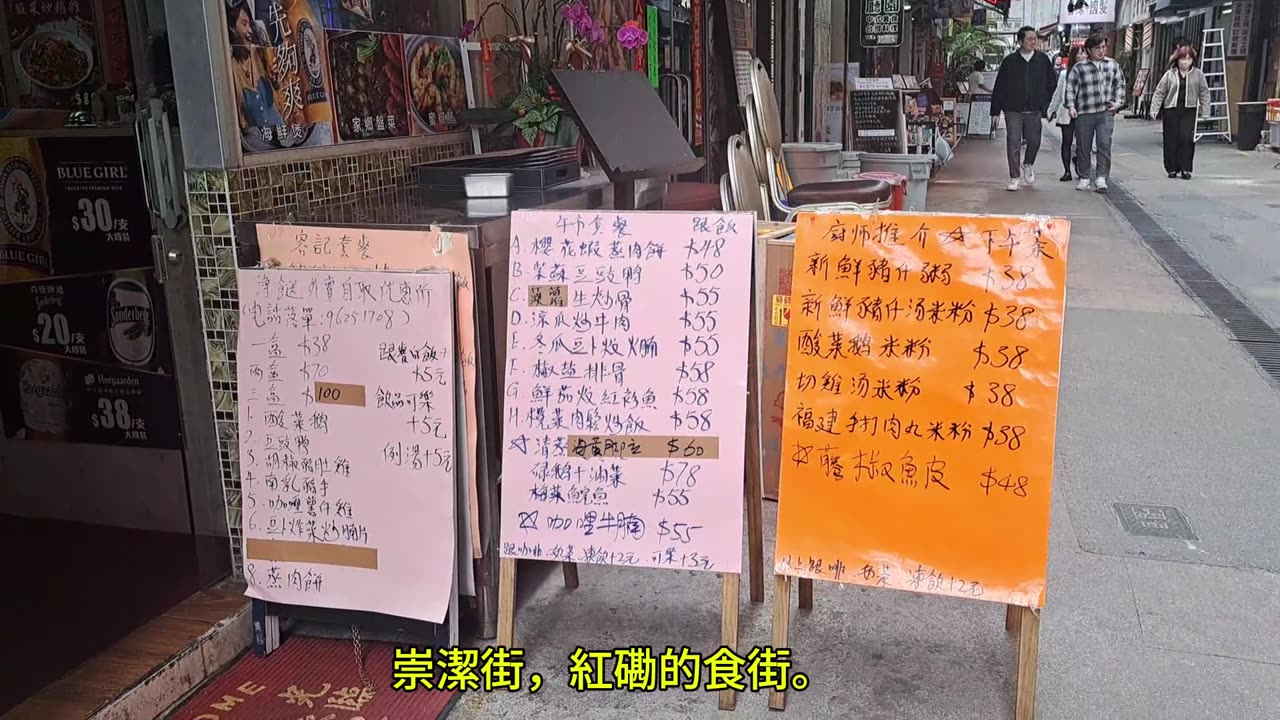 先夠爽
海鮮煲
家鄉盆菜
BLUE GIRL
BLUE GIRL
$30/支
大樽裝
$20/支
大樽裝
Hoegaarden
$38/支
大樽裝
容記套餐
外賣自取优惠价
(电話落單:96251708)
一盒 $38 跟賣白飯
两盒 $70 +5元
三盒 $100 飲品可樂
1. 酸菜鵝 +5元
2. 豆豉鸭
3. 胡椒豬肚雞 例湯+5元
4. 南乳豬手
5. 咖喱薯仔雞
6. 豆卜炸菜炒腩片
8. 蒸肉餅
午市套餐 跟飯
A. 櫻花蝦蒸肉餅 $48
B. 紫蘇豆豉鸭 $50
C. 生炒骨 $55
D. 涼瓜炒牛肉 $55
E. 冬瓜豆卜炆火腩 $55
F. 椒盐排骨 $58
G. 鮮茄炆紅衫魚 $58
H. 欖菜肉鬆炒飯 $58
☆清蒸海黃脚立 $60
碌鵝+油菜 $78
梅菜鯇魚 $55
☆咖喱牛腩 $55
跟咖啡.奶茶.凍飲+2元.可樂+3元
厨师推介☆下午茶
新鮮豬什粥 $38
新鮮豬什汤米粉 $38
酸菜鹅米粉 $38
切雞汤米粉 $38
福建手打肉丸米粉 $38
☆藤椒魚皮 $48
以上跟啡.奶茶 凍飲+2元
崇潔街，紅磡的食街。